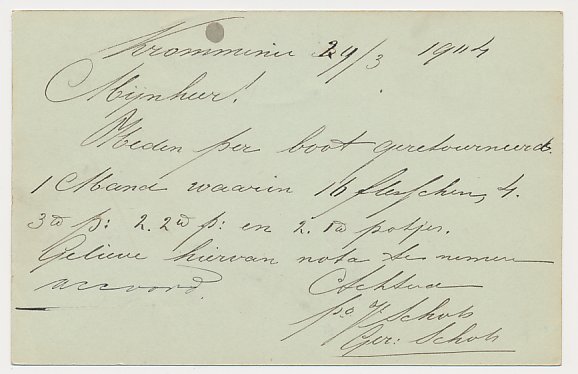 Krommenie 24/3 1914
Mijnheer!
Heden per boot geretourneerd.
1 Mand waarin 16 flesschen, 4.
3td p: 2. 2td p: en 2. 1td potjes.
Gelieve hiervan nota te nemen
accoord.
Achtend
po J. Schots
Ger: Schots